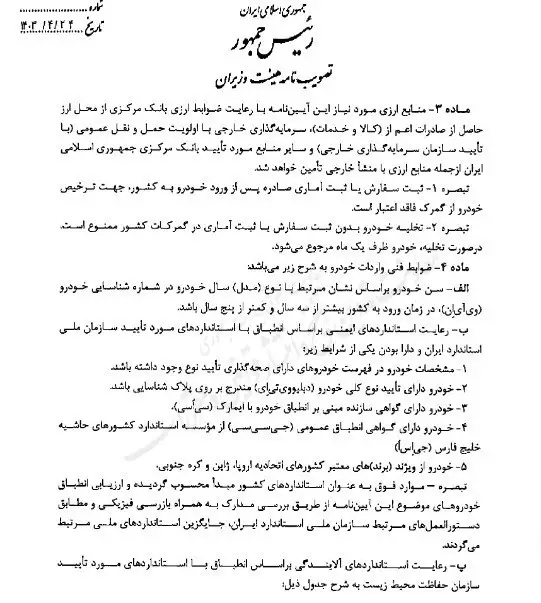 جمهوری اسلامی ایران
رئیس جمهور
تصویب نامه هیئت وزیران
شماره
تاریخ ۱۴۰۳/۴/۲۴
ماده ۳- منابع ارزی مورد نیاز این آیین‌نامه با رعایت ضوابط ارزی بانک مرکزی از محل ارز
حاصل از صادرات اعم از (کالا و خدمات)، سرمایه‌گذاری خارجی با اولویت حمل و نقل عمومی (با
تأیید سازمان سرمایه‌گذاری خارجی) و سایر منابع مورد تأیید بانک مرکزی جمهوری اسلامی
ایران ازجمله منابع ارزی با منشأ خارجی تأمین خواهد شد.
تبصره ۱- ثبت سفارش یا ثبت آماری صادره پس از ورود خودرو به کشور، جهت ترخیص
خودرو از گمرک فاقد اعتبار است.
تبصره ۲- تخلیه خودرو بدون ثبت سفارش یا ثبت آماری در گمرکات کشور ممنوع است.
درصورت تخلیه، خودرو ظرف یک ماه مرجوع می‌شود.
ماده ۴- ضوابط فنی واردات خودرو به شرح زیر می‌باشد:
الف- سن خودرو براساس نشان مرتبط با نوع (مدل) سال خودرو در شماره شناسایی خودرو
(وی‌آی‌ان)، در زمان ورود به کشور بیشتر از سه سال و کمتر از پنج سال باشد.
ب- رعایت استانداردهای ایمنی براساس انطباق با استانداردهای مورد تأیید سازمان ملی
استاندارد ایران و دارا بودن یکی از شرایط زیر:
۱- مشخصات خودرو در فهرست خودروهای دارای صحه‌گذاری تأیید نوع وجود داشته باشد.
۲- خودرو دارای تأیید نوع کلی خودرو (دبلیووی‌تی‌ای) مندرج بر روی پلاک شناسایی باشد.
۳- خودرو دارای گواهی سازنده مبنی بر انطباق خودرو با ایمارک (سی‌اُسی).
۴- خودرو دارای گواهی انطباق عمومی (جی‌سی‌سی) از مؤسسه استاندارد کشورهای حاشیه
خلیج فارس (جی‌اِس‌اُ)
۵- خودرو از ویژند (برند)های معتبر کشورهای اتحادیه اروپا، ژاپن و کره جنوبی.
تبصره – موارد فوق به عنوان استانداردهای کشور مبدأ محسوب گردیده و ارزیابی انطباق
خودروهای موضوع این آیین‌نامه از طریق بررسی مدارک به همراه بازرسی فیزیکی و مطابق
دستورالعمل‌های مرتبط سازمان ملی استاندارد ایران، جایگزین استانداردهای ملی مرتبط
می‌گردند.
پ- رعایت استانداردهای آلایندگی براساس انطباق با استانداردهای مورد تأیید
سازمان حفاظت محیط زیست به شرح جدول ذیل: